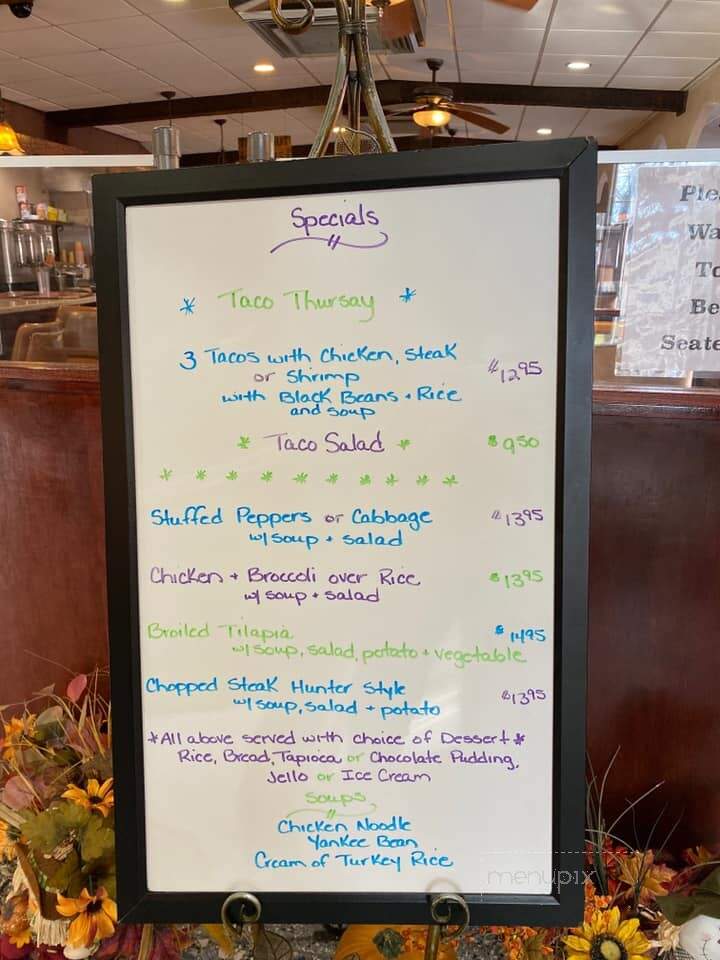 Specials
* Taco Thursay *
3 Tacos with Chicken, Steak
or Shrimp
with Black Beans + Rice
and soup
$12.95
* Taco Salad *
$9.50
Stuffed Peppers or Cabbage
w/ soup + salad
$13.95
Chicken + Broccoli over Rice
w/ soup + salad
$13.95
Broiled Tilapia
$14.95
w/ soup, salad, potato + vegetable
Chopped Steak Hunter Style
w/ soup, salad + potato
$13.95
*All above served with choice of Dessert*
Rice, Bread, Tapioca or Chocolate Pudding,
Jello or Ice Cream
Soups
Chicken Noodle
Yankee Bean
Cream of Turkey Rice
menupix
Ple
Wa
To
Be
Seate